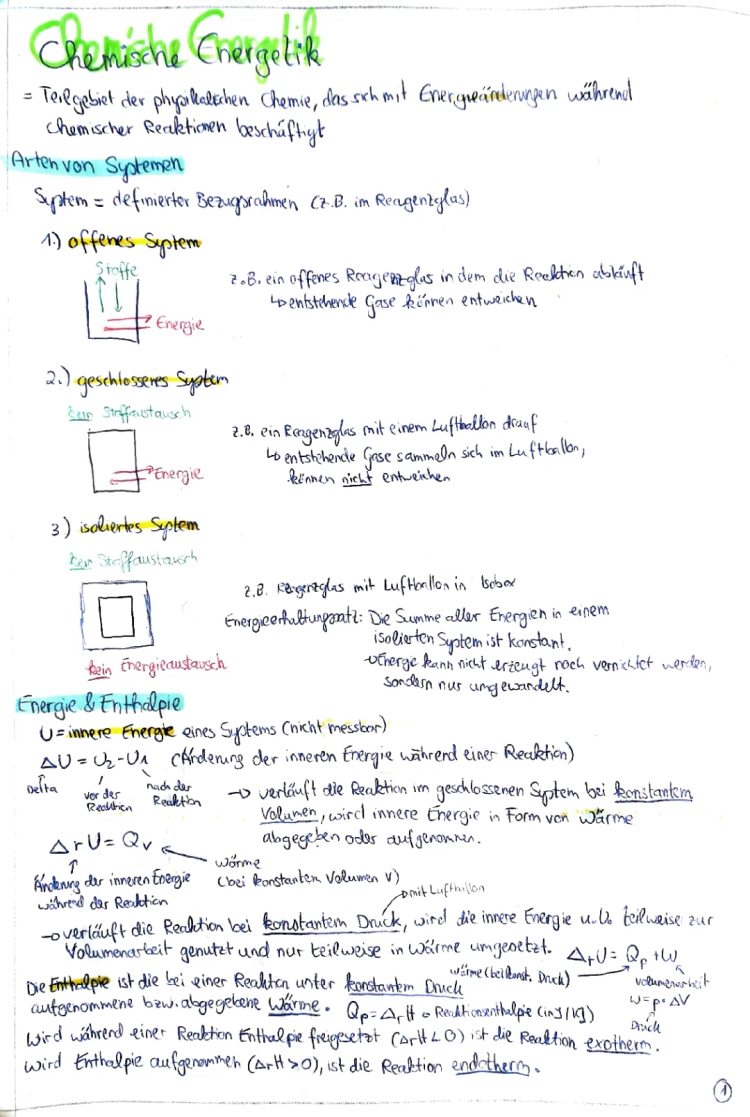 Chemische Energetik
= Teilgebiet der physikalischen Chemie, das sich mit Energieänderungen während
chemischer Reaktionen beschäftigt
Arten von Systemen
System = definierter Bezugsrahmen (z.B. im Reagenzglas)
1.) offenes System
Stoffe
z.B. ein offenes Reagenzglas in dem die Reaktion abläuft
↳ entstehende Gase können entweichen
Energie
2.) geschlosseres System
kein Stoffaustausch
z.B. ein Reagenzglas mit einem Luftballon drauf
↳ entstehende Gase sammeln sich im Luftballon,
können nicht entweichen
Energie
3) isoliertes System
kein Stoffaustausch
z.B. Reagenzglas mit Luftballon in Isobox
Energieerhaltungssatz: Die Summe aller Energien in einem
isolierten System ist konstant.
→ Energie kann nicht erzeugt noch vernichtet werden,
sondern nur umgewandelt.
kein Energieaustausch
Energie & Enthalpie
U = innere Energie eines Systems (nicht messbar)
ΔU = U₂-U₁ (Änderung der inneren Energie während einer Reaktion)
Delta
vor der Reaktion
nach der Reaktion
→ verläuft die Reaktion im geschlossenen System bei konstantem
Volumen, wird innere Energie in Form von Wärme
abgegeben oder aufgenommen.
ΔrU = Qv
Wärme
(bei konstantem Volumen V)
Änderung der inneren Energie
während der Reaktion
mit Luftballon
→ verläuft die Reaktion bei konstantem Druck, wird die innere Energie u.U. teilweise zur
Volumenarbeit genutzt und nur teilweise in Wärme umgesetzt. ΔrU = Qp + W
Wärme (bei konst. Druck)
Volumenarbeit
W = p • ΔV
Druck
Die Enthalpie ist die bei einer Reaktion unter konstantem Druck
aufgenommene bzw. abgegebene Wärme. Qp = ΔrH = Reaktionsenthalpie (in J/KJ)
Wird während einer Reaktion Enthalpie freigesetzt (ΔrH < 0) ist die Reaktion exotherm.
Wird Enthalpie aufgenommen (ΔrH > 0), ist die Reaktion endotherm.
1